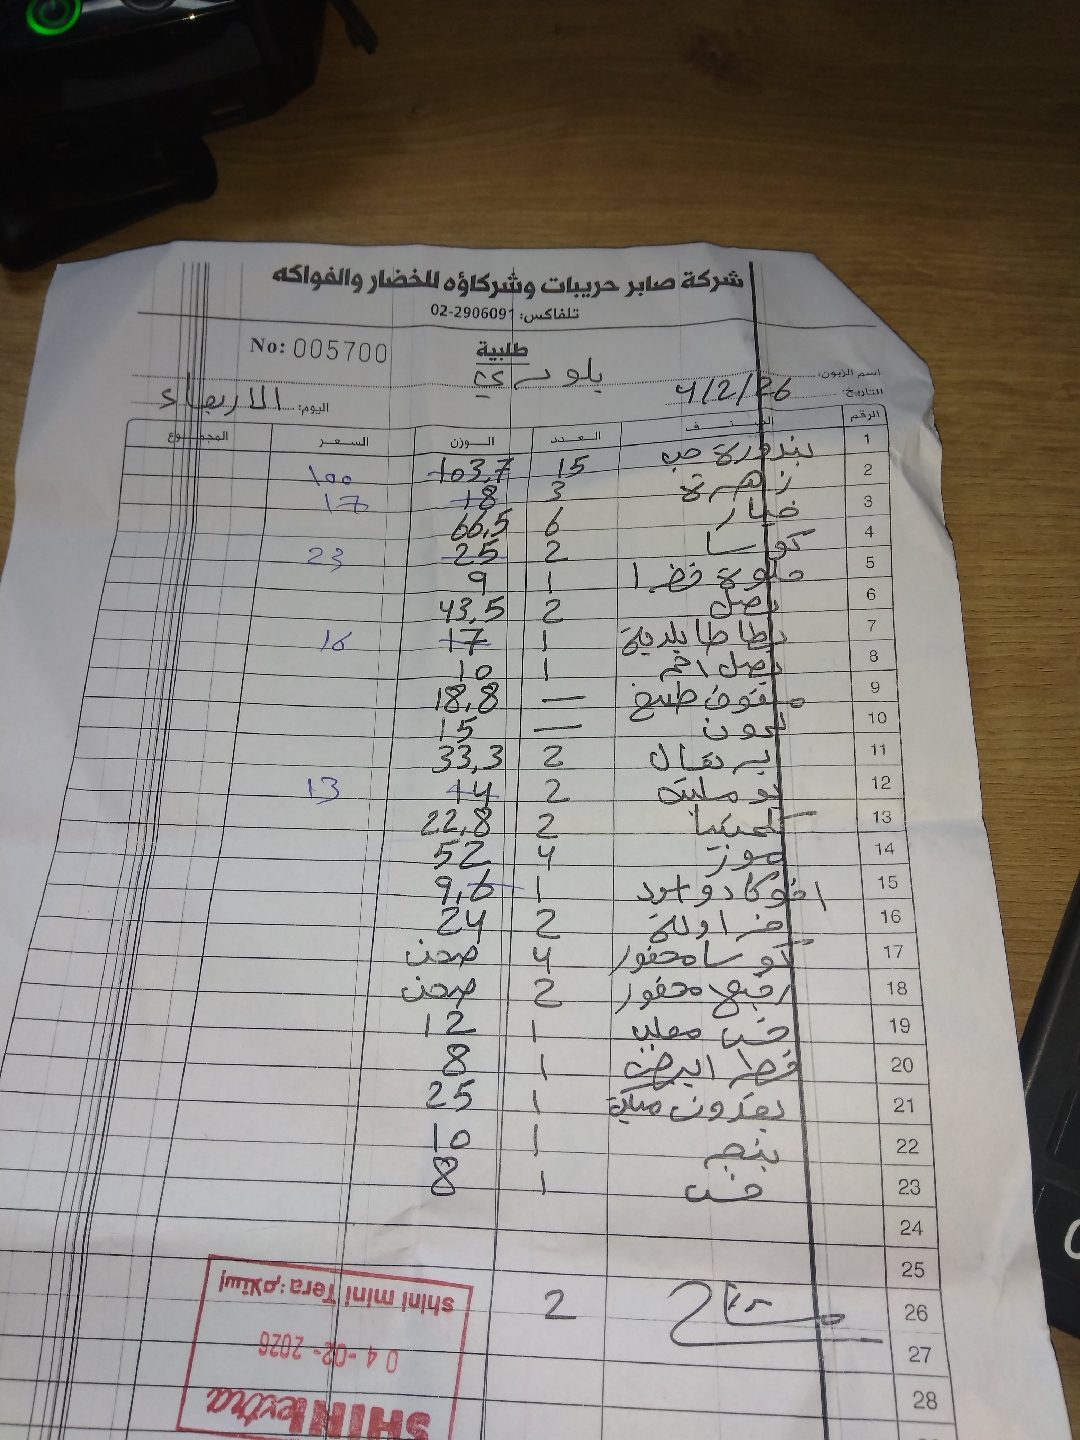 شركة صابر حريبات وشركاؤه للخضار والفواكه
تلفاكس: 02-2906091
No: 005700
طلبية
اسم الزبون:
التاريخ: 4/2/26
اليوم: الاربعاء
الرقم الصنف العدد الوزن السعر المجموع
1 بندورة حب 15 103,7 100
2 زهرة 3 18 17
3 خيار 6 66,5
4 كوسا 2 25 23
5 حلوة خضرا 1 9
6 بصل 2 43,5
7 بطاطا بلدية 1 17 16
8 بصل احمر 1 10
9 ملفوف طبيخ — 18,8
10 ليمون — 15
11 برتقال 2 33,3
12 بوملي 2 14 13
13 كلمنتينا 2 22,8
14 موز 4 52
15 افوكادو اسود 1 9,6
16 فراولة 2 24
17 كوسا محفور 4 صحن
18 محفور 2 صحن
19 خس 1 12
20 فطر ابيض 1 8
21 بقدونس 1 25
22 1 10
23 خس 1 8
24
25
26 2
27
28
shini mini Tera :إستلام
04-02-2026
SHINI extra